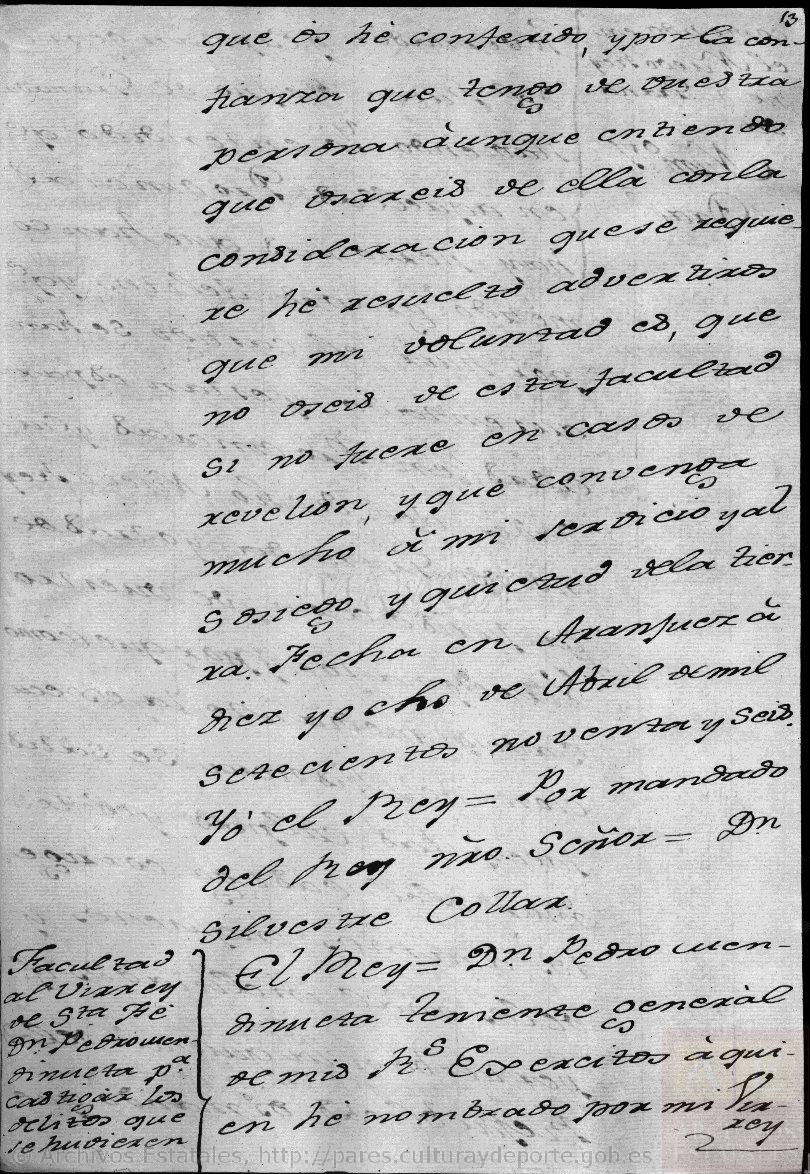 13
que ôs hé conferido, y por la con-
fianza que tengo de vuestra
persona àunque entiendo
que usareis de ella con la
consideracion que se requie-
re hé resuelto advertiros
que mi voluntad es, que
no useis de esta facultad
si no fuere en casos de
revelion, y que convenga
mucho â mi servicio y al
sosiego y quietud dela tier-
ra. Fecha en Aranjuez â
diez y ocho de Abril de mil
setecientos noventa y seis.
Yó el Rey = Por mandado
del Rey ñro Señor = Dn.
Silvestre Collar.
Facultad
al Virrey
de Sta Fé
Dn. Pedro men-
dinueta pa.
castigar los
delitos que
se huvieren
El Rey = Dn. Pedro men-
dinueta teniente generàl
de mis Rs. Exercitos à qui-
en hé nombrado por mi Vir-
rey
© Archivos Estatales, http://pares.culturaydeporte.gob.es